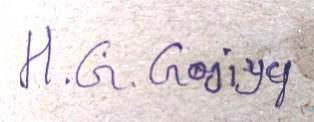 H. G. Gojiya